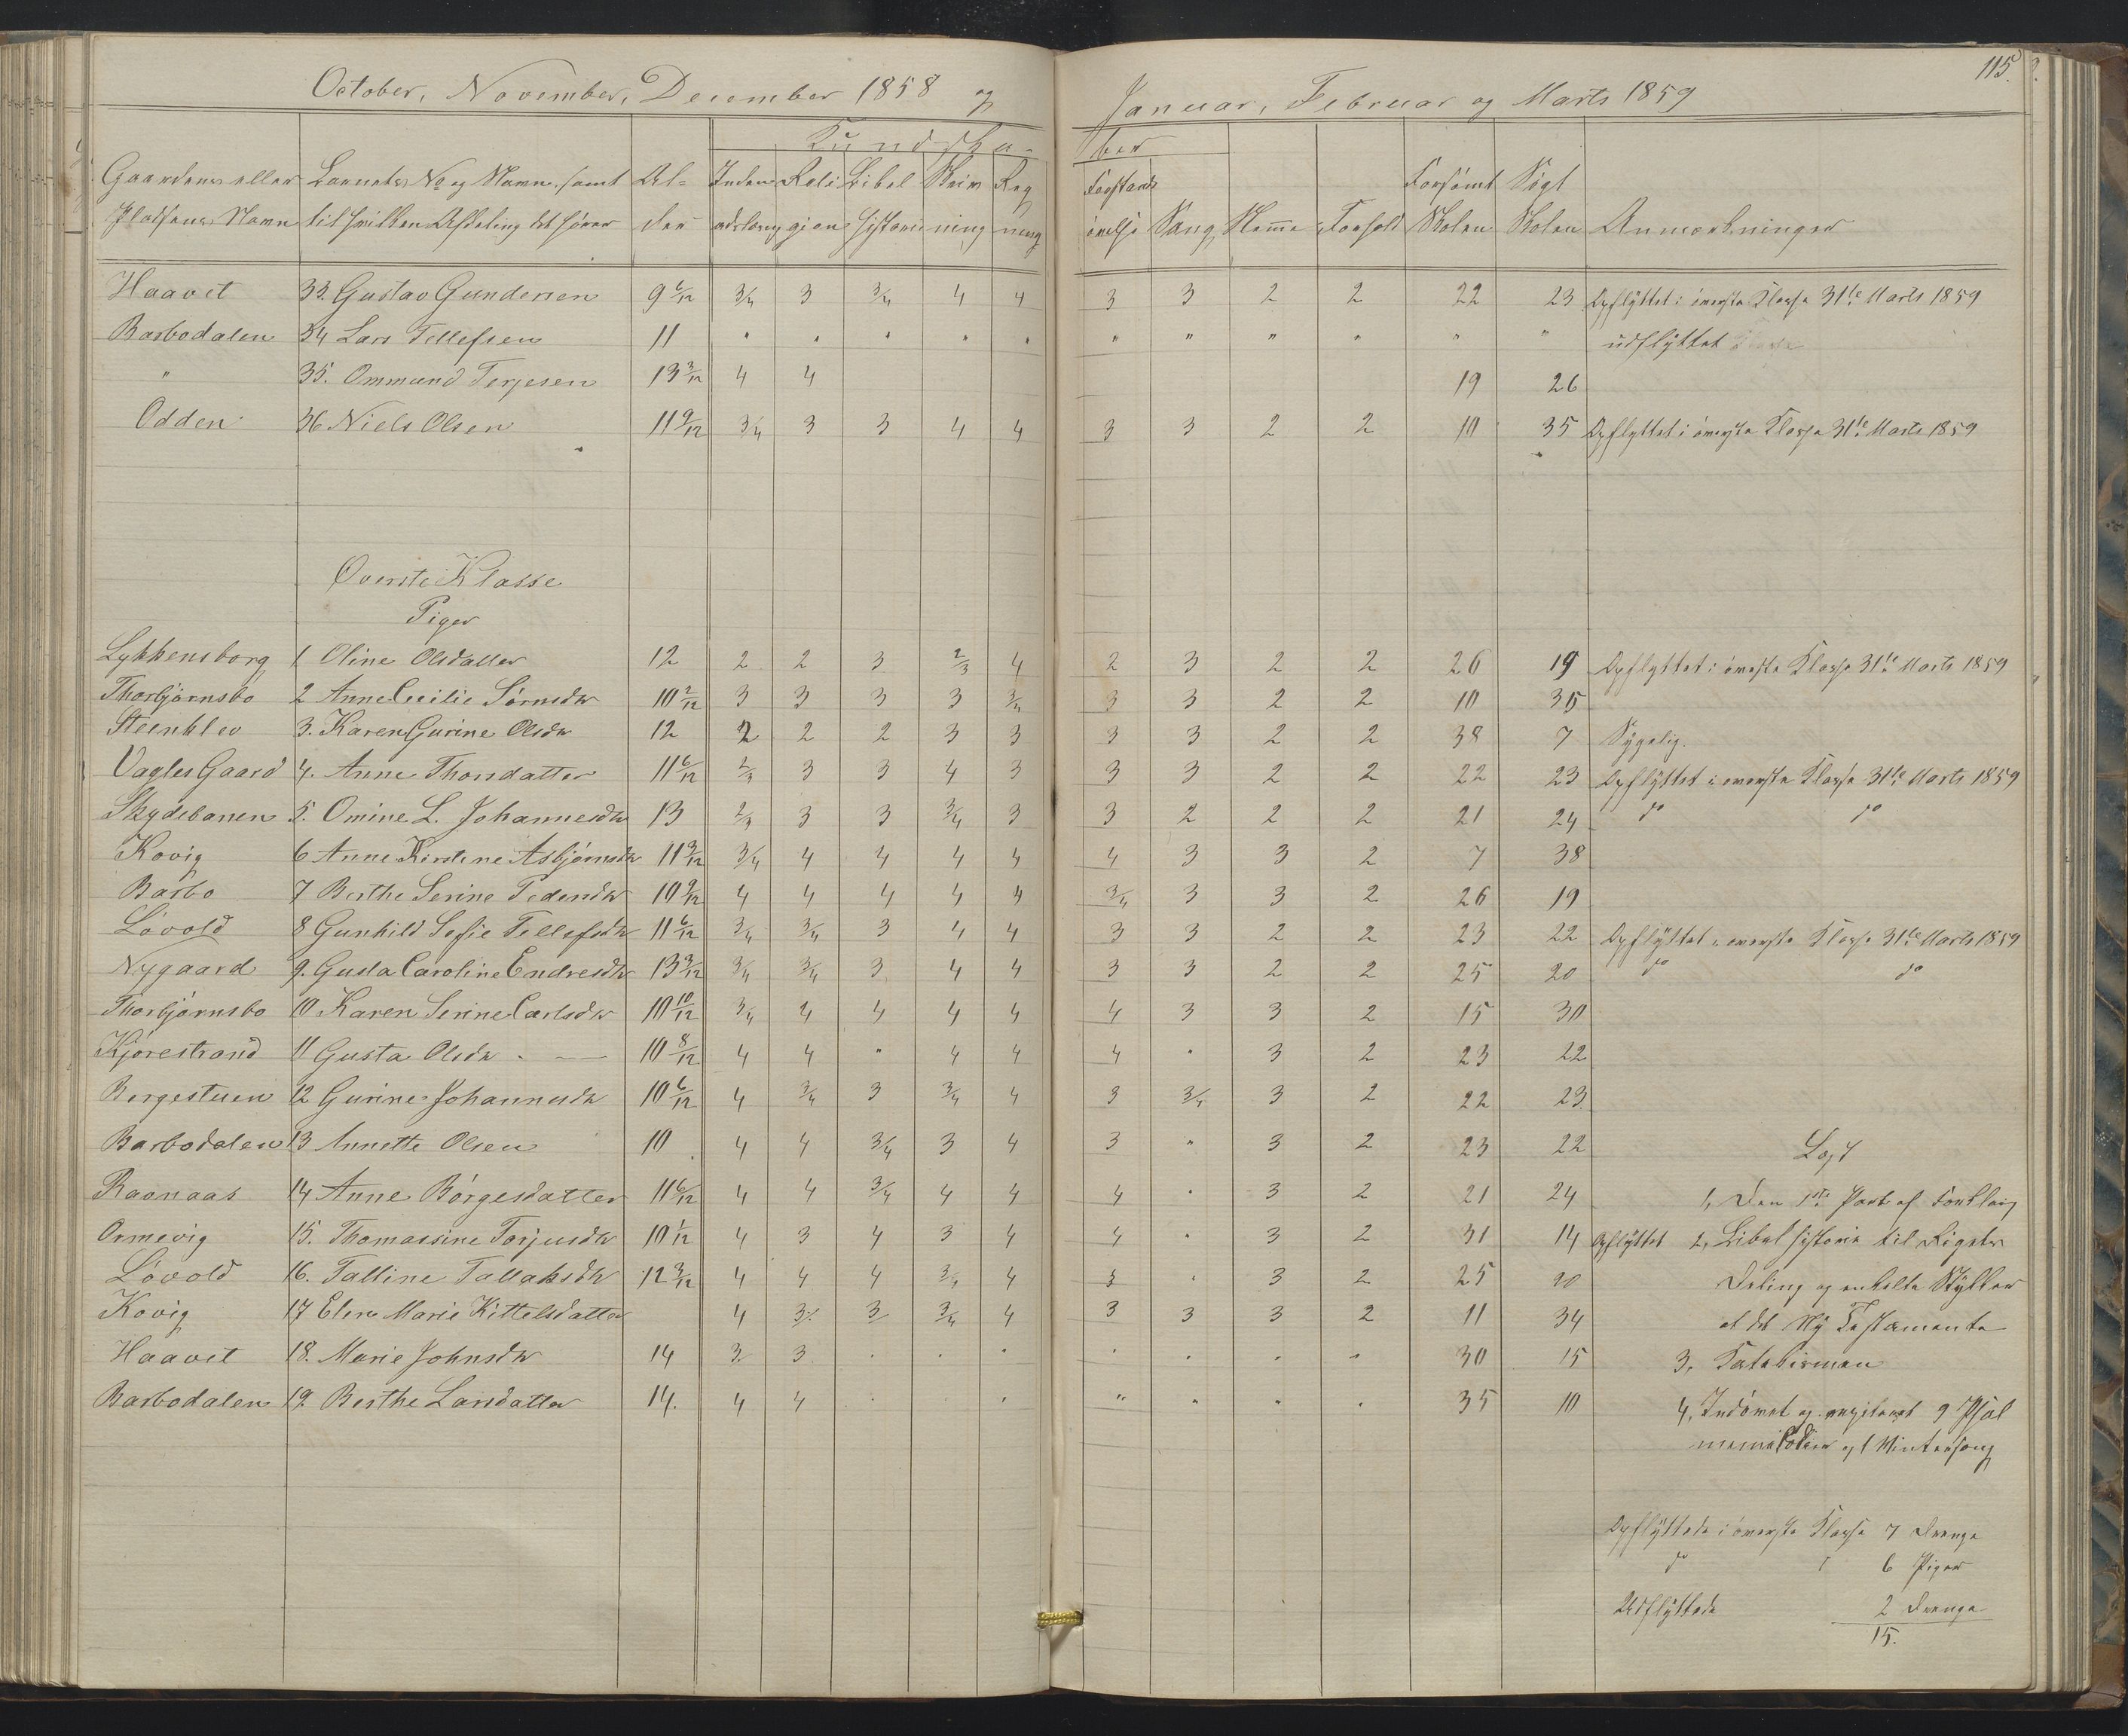 115.
October, November, December 1858 og Januar, Februar og Marts 1859
Kundska- ber
Gaardens eller Barnets No og Navn, samt Al- Inden Reli Bibel Skriv Reg Forstands Forsømt Søgt
Pladsens Navn til hvilken Afdeling det hører der adslæsng gion historie ning ning øvelse Sang Nemme Forhold Skolen Skolen Anmærkninger
Haavet 33. Gustav Gundersen 9 6/12 3/4 3 3/4 4 4 3 3 2 2 22 23 Opflyttet i øverste Klasse 31te Marts 1859
Barbodalen 34 Lars Tellefsen 11 " " " " " " " " " " " udflyttet
" 35. Ommund Terjesen 13 3/12 4 4 19 26
Odden 36 Niels Olsen 11 9/12 3/4 3 3 4 4 3 3 2 2 10 35 Opflyttet i øverste Klasse 31te Marts 1859
Øverste Klasse
Piger
Lykkensborg 1 Oline Olsdatter 12 2 2 3 2/3 4 2 3 2 2 26 19 Opflyttet i øverste Klasse 31te Marts 1859
Thorbjørnsbo 2 Anne Cecilie Sørnsdtr 10 2/12 3 3 3 3 3/4 3 3 2 2 10 35
Steenklev 3. Karen Gurine Olsdtr 12 2 2 2 3 3 3 3 2 2 38 7 Sygelig.
Vagles Gaard 4. Anne Thorsdatter 11 6/12 2/3 3 3 4 3 3 3 2 2 22 23 Opflyttet i øverste Klasse 31te Marts 1859
Skydebanen 5. Omine L. Johannesdtr 13 2/3 3 3 3/4 3 3 2 2 2 21 24 do do
Kovig 6 Anne Kirstine Asbjørnsdtr 11 3/12 3/4 4 4 4 4 4 3 3 2 7 38
Barbo 7 Berthe Serine Pedersdtr 10 9/12 4 4 4 4 4 3/4 3 3 2 26 19
Løvold 8 Gunhild Sofie Tellefsdtr 11 6/12 3/4 3/4 3 4 4 3 3 2 2 23 22 Opflyttet i øverste Klasse 31te Marts 1859
Nygaard 9. Gusta Caroline Endresdtr 13 3/12 3/4 3/4 3 4 4 3 3 2 2 25 20 do do
Thorbjørnsbo 10 Karen Serine Carlsdtr 10 10/12 3/4 4 4 4 4 4 3 3 2 15 30
Kjørestrand 11 Gusta Olsdtr 10 8/12 4 4 " 4 4 4 " 3 2 23 22
Bergestuen 12 Gurine Johannesdtr 10 6/12 4 3/4 3 3/4 4 3 3/4 3 2 22 23
Barbodalen 13 Annette Olsen 10 4 4 3/4 3 4 3 " 3 2 23 22 Læst
Raanaas 14 Anne Børgesdatter 11 6/12 4 4 3/4 4 4 4 " 3 2 21 24 1, Den 1ste Part af Forklarg
Ormevig 15. Thomassine Torjusdtr 10 1/12 4 3 4 3 4 4 " 3 2 31 14 Opflyttet 2, Bibelhistorie til Rigets
Løvold 16. Talline Tallaksdtr 12 3/12 4 4 4 3/4 4 3 " 3 2 25 20 Deling og enkelte Stykker
Kovig 17 Elen Marie Kittelsdatter 4 3/4 3 3/4 4 3 3 3 2 11 34 af det Ny Testamente
Haavet 18. Marie Johnsdtr 14 3 3 " " " " " " " 30 15 3, Katekismen
Barbodalen 19 Berthe Larsdatter 14. 4 4 " " " " " " " 35 10 4, Indøvet og 9 Psal
memelodier og 1 Vintersang
Opflyttede i øverste Klasse 7 Drenge
do 6 Piger
Udflyttede 2 Drenge
15.